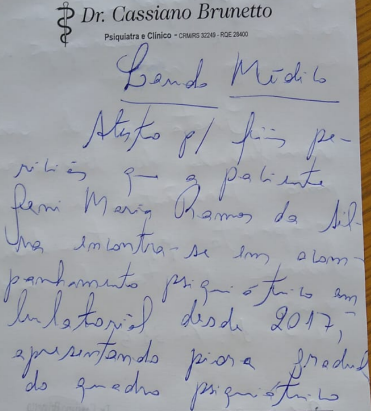 Dr. Cassiano Brunetto
Psiquiatra e Clínico - CRM/RS 32249 - RQE 28400
Laudo Médico
Atesto p/ fins pe-
riciais que a paciente
Reni Maria Ramos da Sil-
va encontra-se em acom-
panhamento psiquiátrico am
bulatorial desde 2017,
apresentando piora gradual
do quadro psiquiátrico